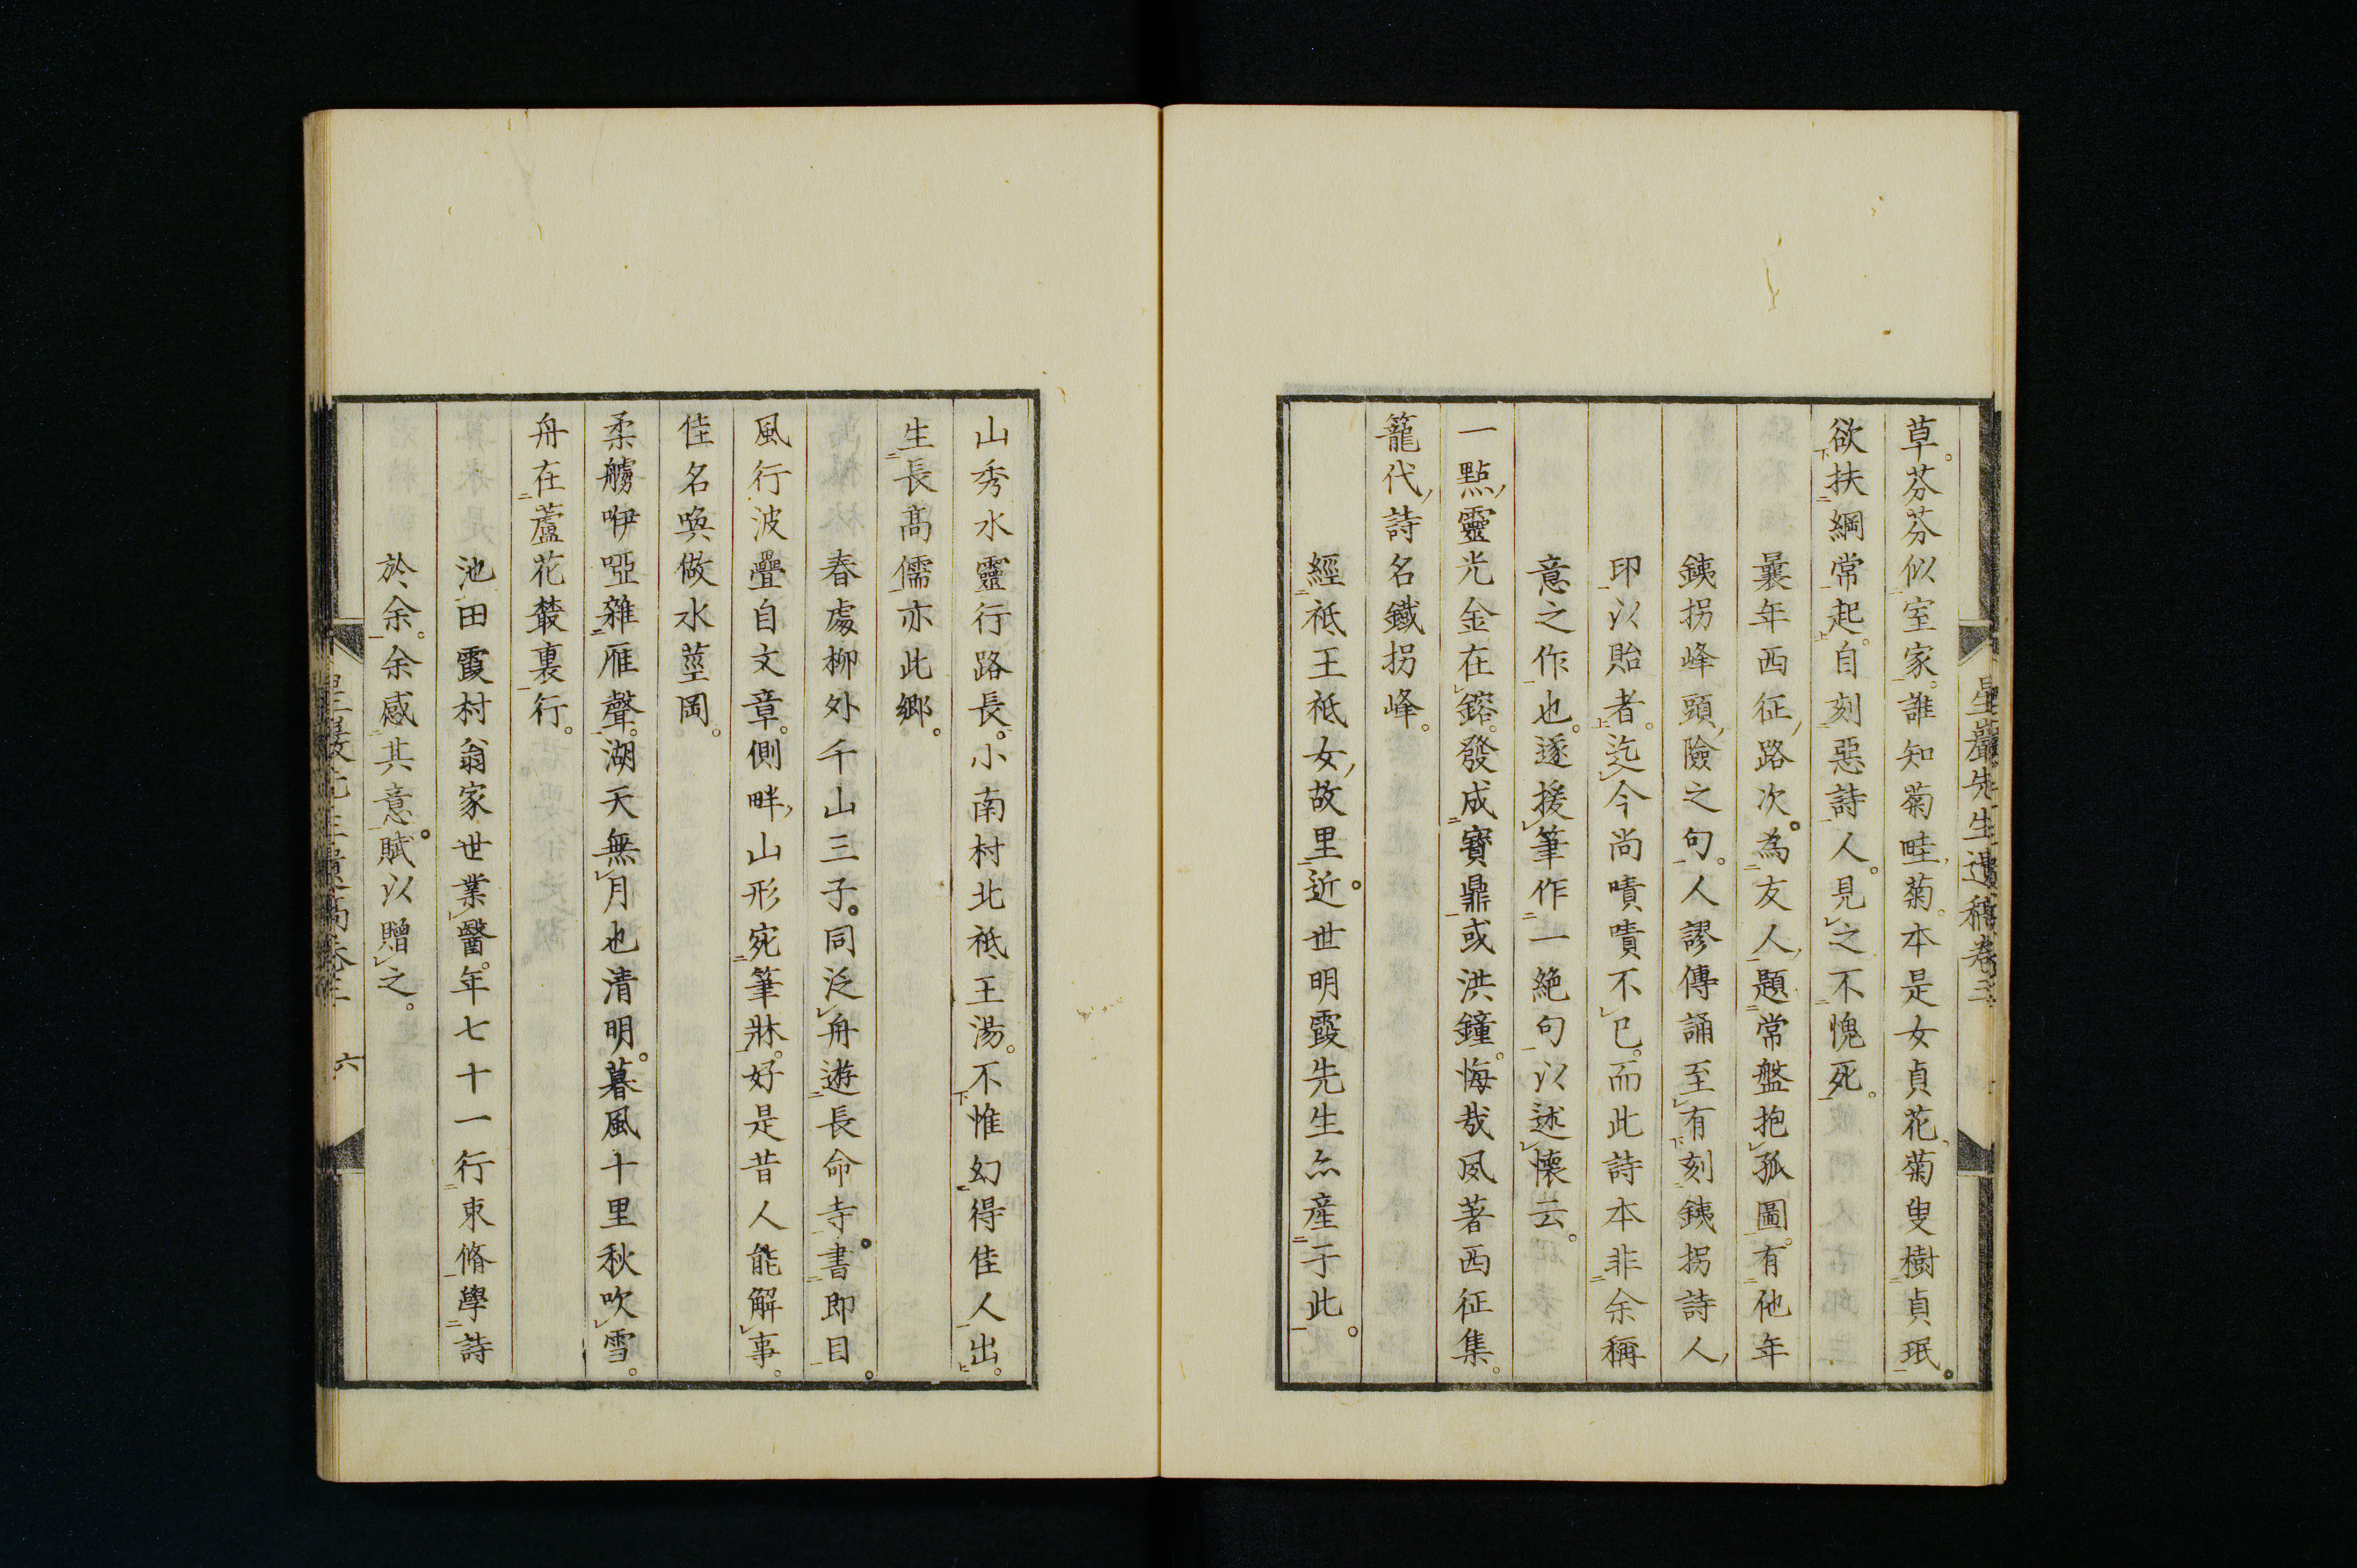 星巖先生遺稿卷三
草。芬芬似室家。誰知菊畦菊。本是女貞花。菊叟樹貞珉。
欲扶綱常起。自刻惡詩人。見之不愧死。
曩年西征路次。為友人題常盤抱孤圖。有他年
鐵拐峰頭險之句。人謬傳誦至有刻鐵拐詩人
印以貽者。迄今尚嘖嘖不已。而此詩本非余稱
意之作也。遂援筆作一絶句以述懷云。
一點靈光金在鎔。發成寶鼎或洪鐘。悔哉夙著西征集。
籠代詩名鐵拐峰。
經祗王祗女故里。近世明霞先生亦產于此。
山秀水靈行路長。小南村北祗王湯。不惟幻得佳人出。
生長高儒亦此鄉。
春處柳外千山三子。同泛舟遊長命寺。書即目。
風行波疊自文章。側畔山形宛筆牀。好是昔人能解事。
佳名喚做水莖岡。
柔艣咿啞雜雁聲。湖天無月也清明。暮風十里秋吹雪。
舟在蘆花叢裏行。
池田霞村翁家世業醫。年七十一行束脩學詩
於余。余感其意。賦以贈之。
星巖先生遺稿卷三 六